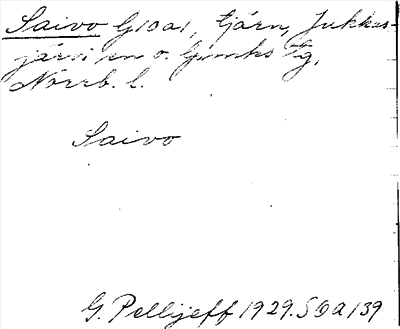 Saivo G10a1, tjärn, Jukkas-
järvi sn o. Gjmks tg,
Norrb. l.
Saivo
G. Pellijeff 1929. SDa 139